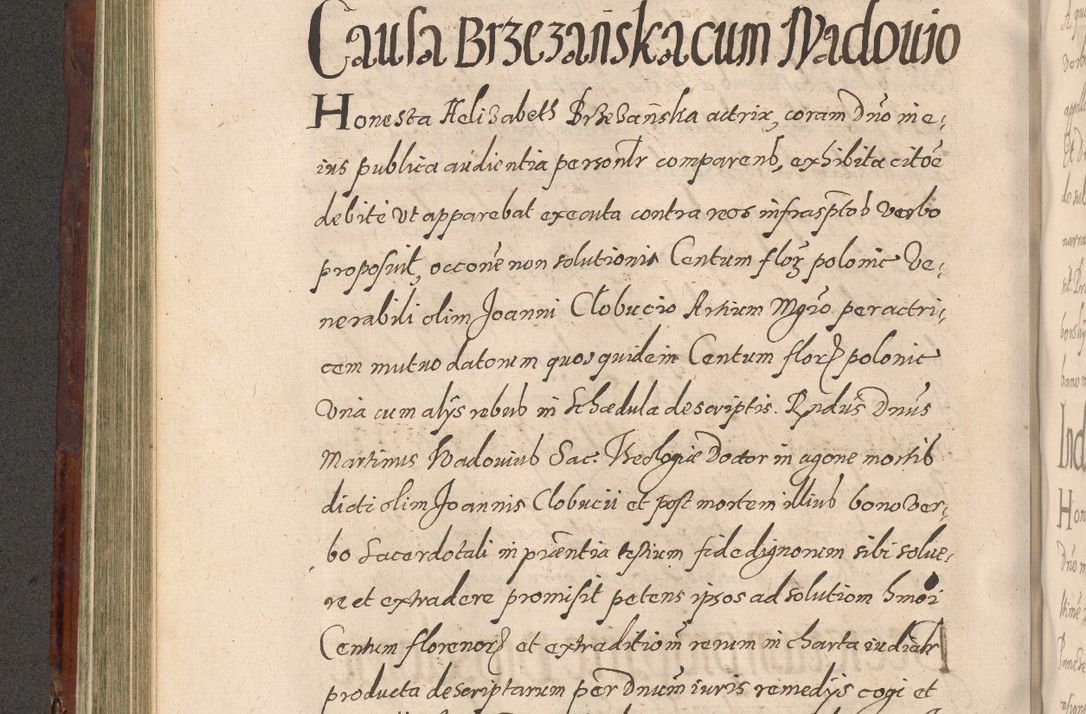 Causa Brzezańska cum Wadovio
Honesta Helizabeth Brzezańska actrix, coram Dño me¡
ius publica audientia personłr comparens, exhibita citõe
debitè ut apparebat executa contra reos infrasptos verbo
proposuit, occõne non solutionis Centum florz polonic Ve¡
nerabili olim Joanni Clobucio Artium Mgro per actri¡
cem mutuo datorum quos quidem Centum flor polonic
una cum alys rebus in Schædula descriptis. Rndus Dnus
Martinus Wadovius Sac: Theologiæ Doctor in agone mortis
dicti olim Joannis Clobucii et post mortem illius bono ver¡
bo Sacerdotali in præntia testium fide dignorum sibi solue¡
re et extradere promisit petens ipsos ad solutiom hmoi
Centum florenor et extraditiom rerum in charta iudialr
producta descriptarum per Dnum iuris remedys cogi et